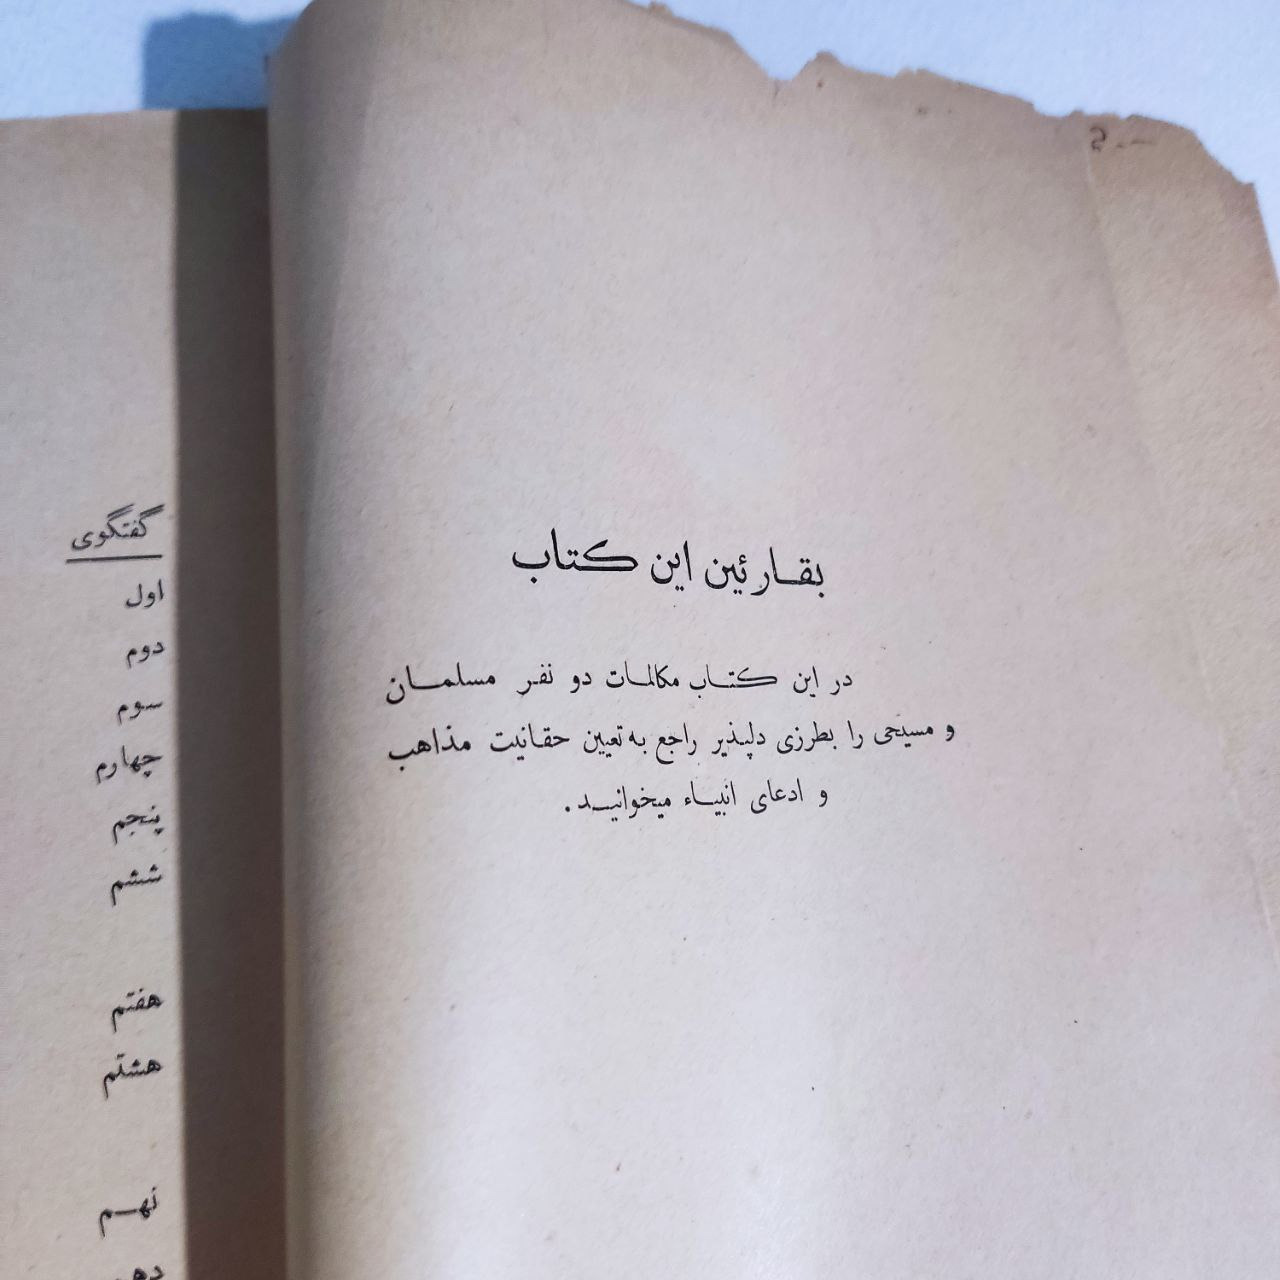 بقارئین این کتاب
در این کتاب مکالمات دو نفر مسلمان
و مسیحی را بطرزی دلپذیر راجع به تعیین حقانیت مذاهب
و ادعای انبیاء میخوانید.
گفتگوی
اول
دوم
سوم
چهارم
پنجم
ششم
هفتم
هشتم
نهم